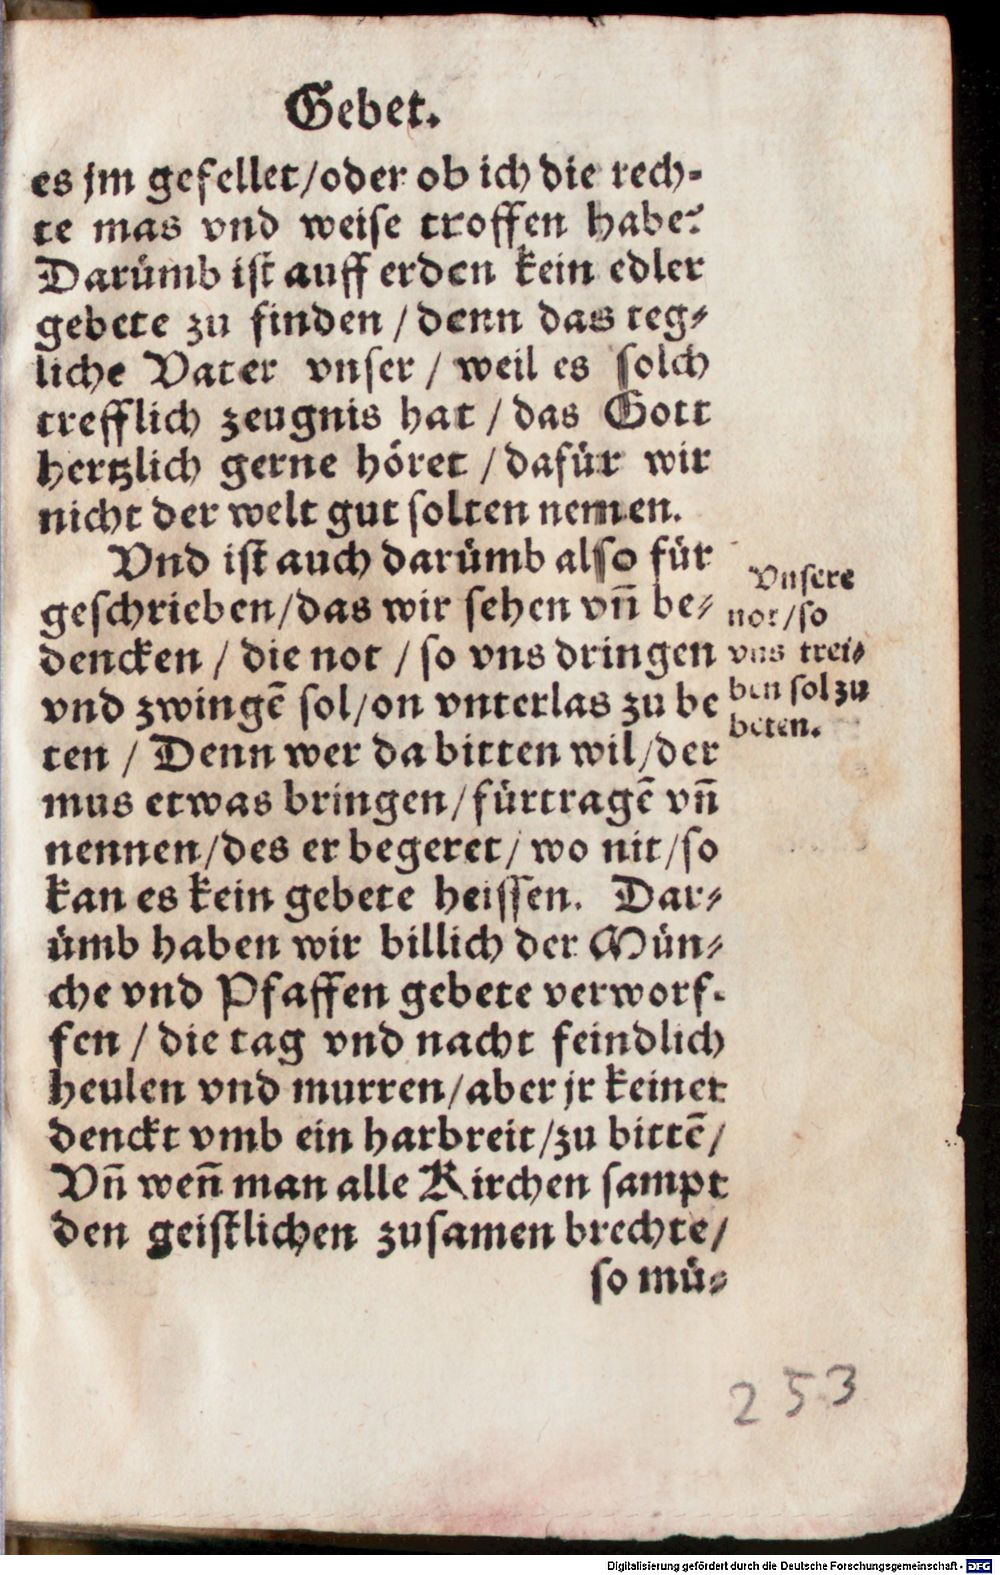 Gebet.
es jm gefellet/oder ob ich die rech-
te mas vnd weise troffen habe?
Darümb ist auff erden kein edler
gebete zu finden / denn das teg-
liche Vater vnser / weil es solch
trefflich zeugnis hat / das Gott
hertzlich gerne höret / dafür wir
nicht der welt gut solten nemen.
Vnd ist auch darümb also für
geschrieben/das wir sehen vñ be-
dencken / die not / so vns dringen
vnd zwingē sol/on vnterlas zu be
ten / Denn wer da bitten wil/der
mus etwas bringen/fürtragē vñ
nennen/des er begeret/ wo nit/so
kan es kein gebete heissen. Dar-
ümb haben wir billich der Mün-
che vnd Pfaffen gebete verworf-
fen / die tag vnd nacht feindlich
heulen vnd murren/aber jr keiner
denckt vmb ein harbreit/zu bittē/
Vñ weñ man alle Kirchen sampt
den geistlichen zusamen brechte/
so mü-
Vnsere
not/so
vns trei-
ben sol zu
beten.
253
Digitalisierung gefördert durch die Deutsche Forschungsgemeinschaft - DFG